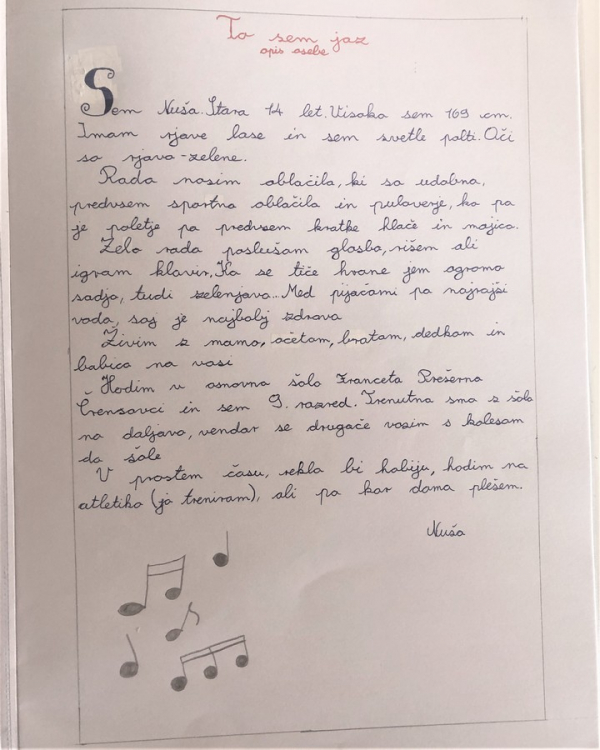 To sem jaz
opis osebe
Sem Nuša. Stara 14 let. Visoka sem 169 cm.
Imam rjave lase in sem svetle polti. Oči
so rjavo-zelene.
Rada nosim oblačila, ki so udobna,
predvsem športna oblačila in puloverje, ko pa
je poletje pa predvsem kratke hlače in majico.
Zelo rada poslušam glasbo, rišem ali
igram klavir. Ko se tiče hrane jem ogromo
sadja, tudi zelenjavo... Med pijačami pa najrajši
vodo, saj je najbolj zdrava
Živim z mamo, očetom, bratom, dedkom in
babico na vasi
Hodim v osnovno šolo Franceta Prešerna
Črensovci in sem 9. razred. Trenutno smo z šolo
na daljavo, vendar se drugače vozim s kolesom
do šole
V prostem času, rekla bi hobiju, hodim na
atletiko (jo treniram), ali pa kar doma plešem.
Nuša